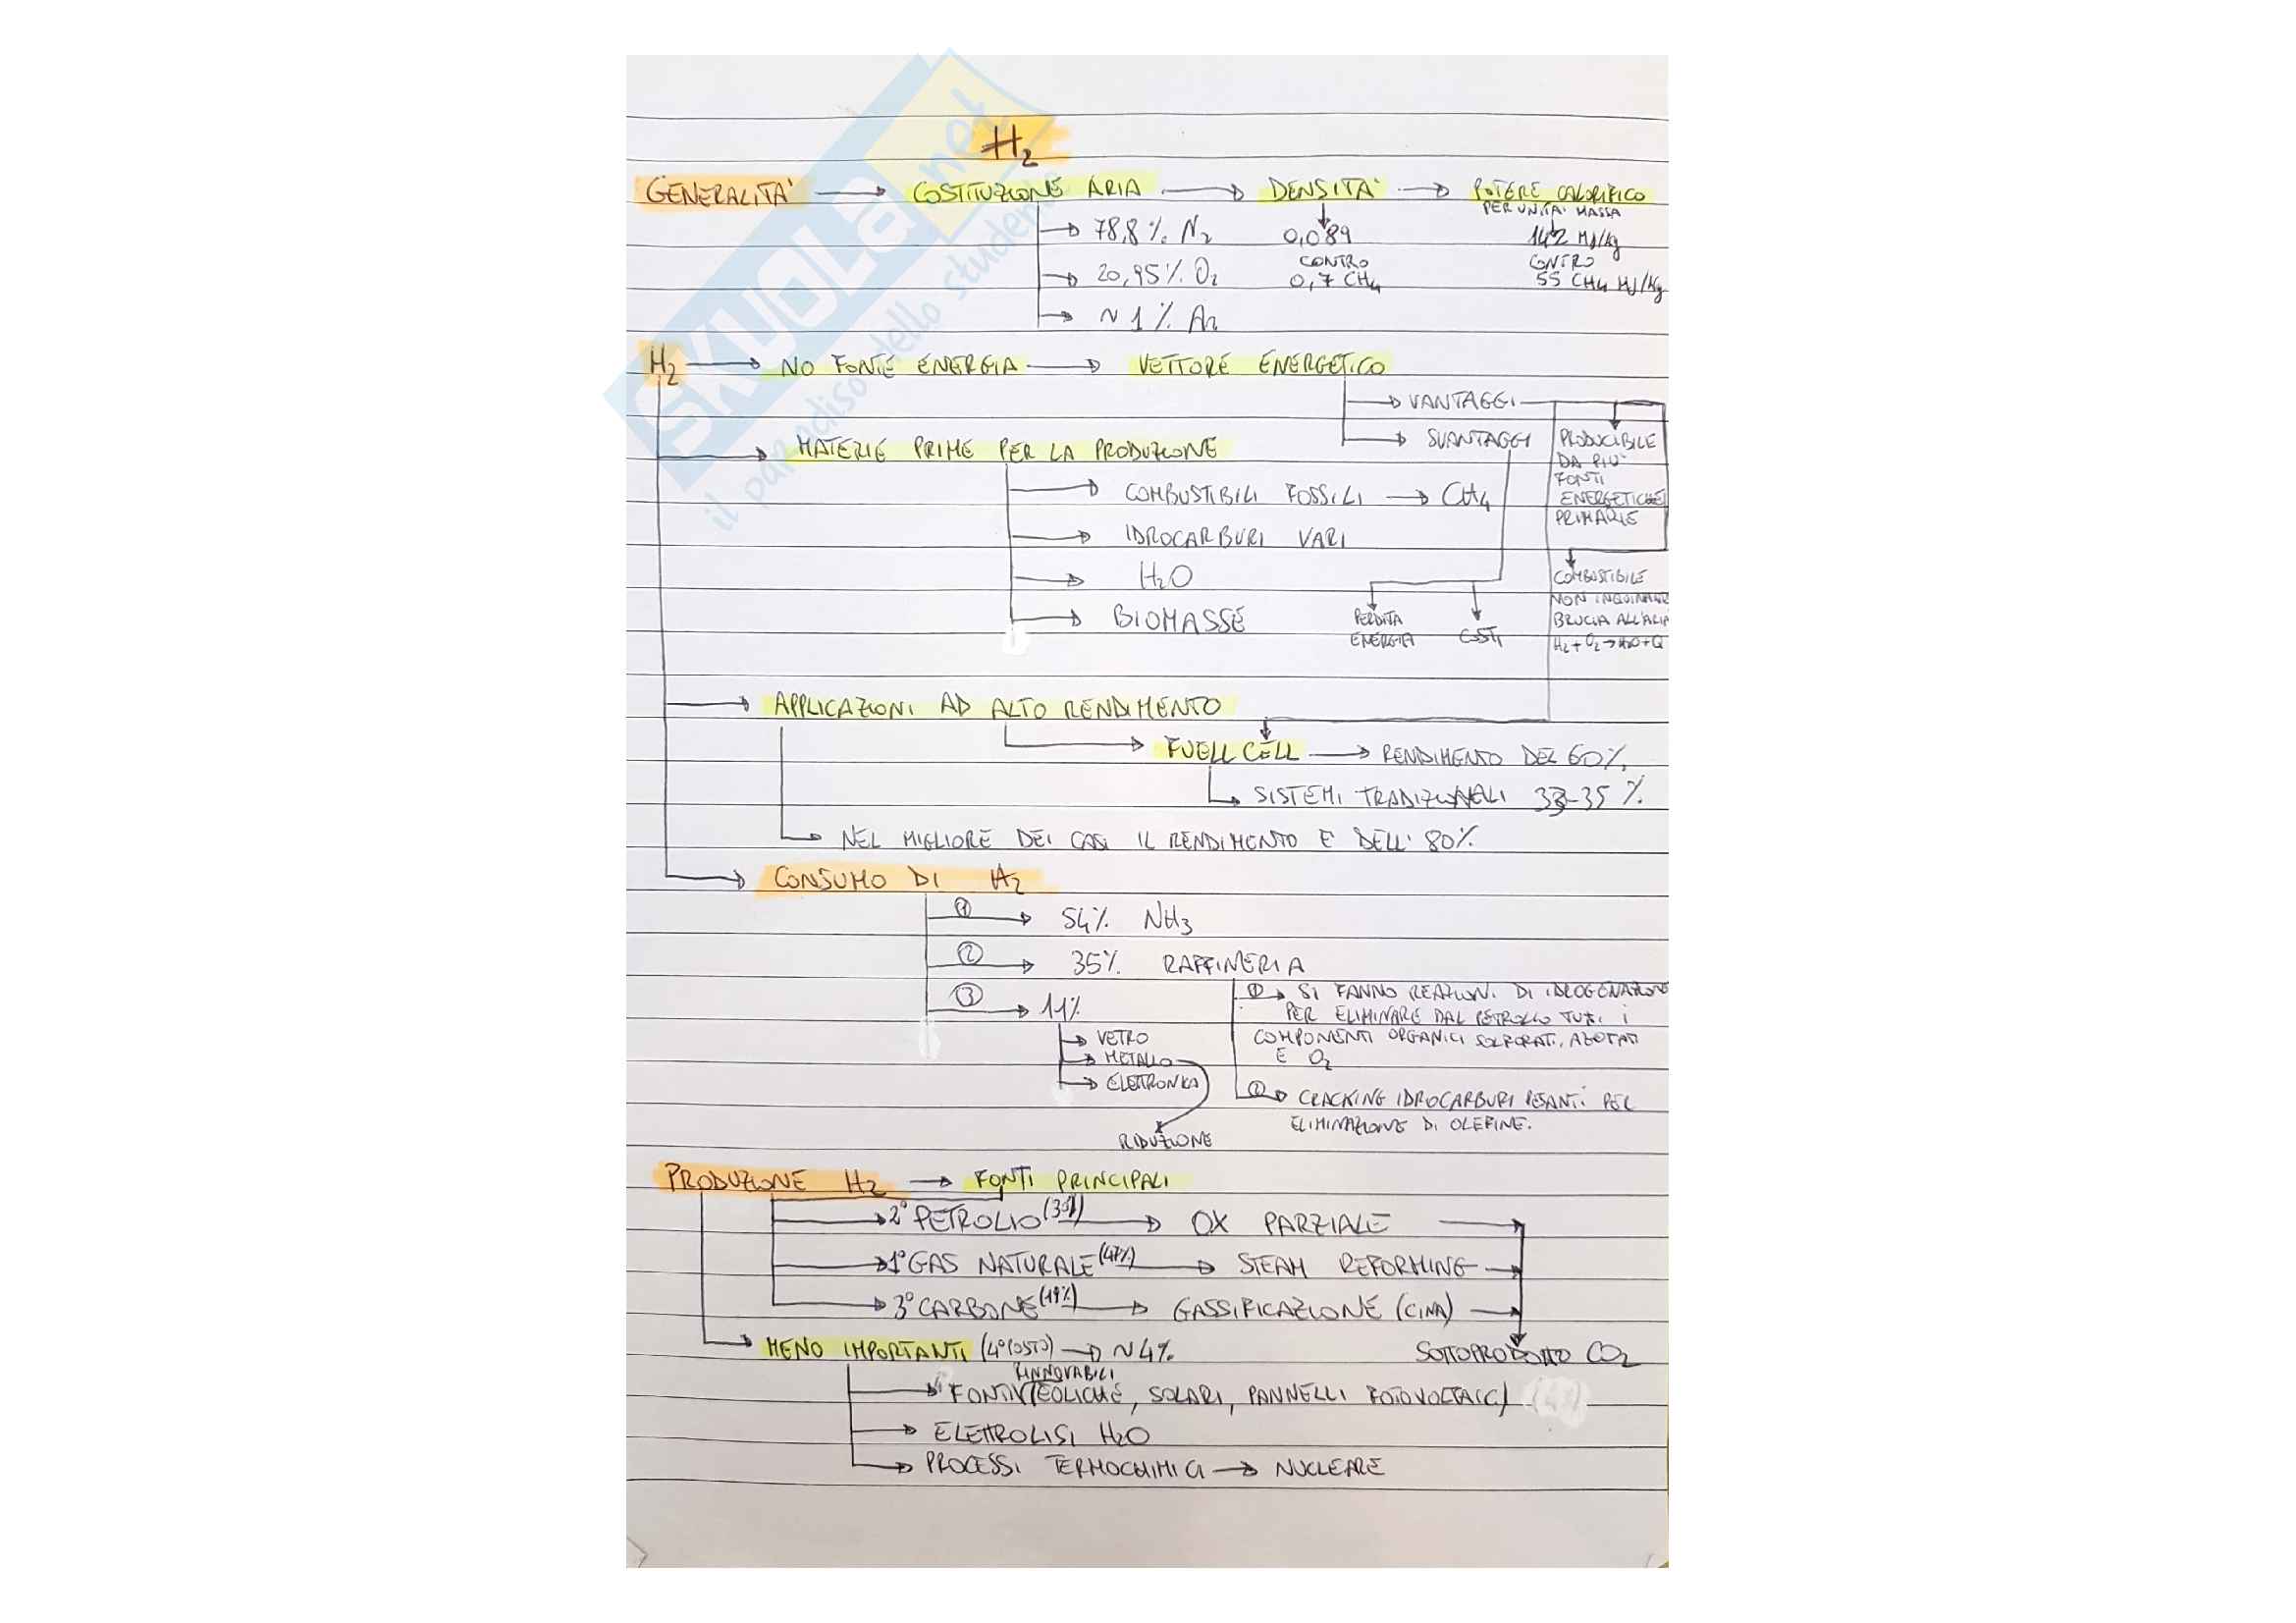 H₂
GENERALITA' → COSTITUZIONE ARIA → DENSITA' → POTERE CALORIFICO
PER UNITA' MASSA
→ 78,8 % N₂ 0,089 142 MJ/kg
CONTRO CONTRO
→ 20,95 % O₂ 0,7 CH₄ 55 CH₄ MJ/kg
→ ~ 1 % Ar
H₂ → NO FONTE ENERGIA → VETTORE ENERGETICO
→ VANTAGGI
→ SVANTAGGI
PRODUCIBILE
DA PIU'
FONTI
ENERGETICHE
PRIMARIE
→ MATERIE PRIME PER LA PRODUZIONE
→ COMBUSTIBILI FOSSILI → CH₄
→ IDROCARBURI VARI
→ H₂O
→ BIOMASSE
PERDITA
ENERGIA
COSTI
COMBUSTIBILE
NON INQUINANTE
BRUCIA ALL'ARIA
H₂ + O₂ → H₂O + Q
→ APPLICAZIONI AD ALTO RENDIMENTO
→ FUELL CELL → RENDIMENTO DEL 60%
→ SISTEMI TRADIZIONALI 33-35 %
→ NEL MIGLIORE DEI CASI IL RENDIMENTO E' DELL' 80%
→ CONSUMO DI H₂
① → 54% NH₃
② → 35% RAFFINERIA
③ → 11%
→ VETRO
→ METALLO
→ ELETTRONICA
RIDUZIONE
① → SI FANNO REAZIONI DI IDROGENAZIONE
PER ELIMINARE DAL PETROLIO TUTTI I
COMPONENTI ORGANICI SOLFORATI, AZOTATI
E O₂
② → CRACKING IDROCARBURI PESANTI PER
ELIMINAZIONE DI OLEFINE.
PRODUZIONE H₂ → FONTI PRINCIPALI
→ 2° PETROLIO → OX PARZIALE →
→ 1° GAS NATURALE (47%) → STEAM REFORMING →
→ 3° CARBONE (19%) → GASSIFICAZIONE (CINA) →
→ MENO IMPORTANTI (4° POSTO) → ~ 4% SOTTOPRODOTTO CO₂
RINNOVABILI
→ FONTI EOLICHE, SOLARI, PANNELLI FOTOVOLTAICI
→ ELETTROLISI H₂O
→ PROCESSI TERMOCHIMICI → NUCLEARE
SKUOLA.net
il paradiso dello studente